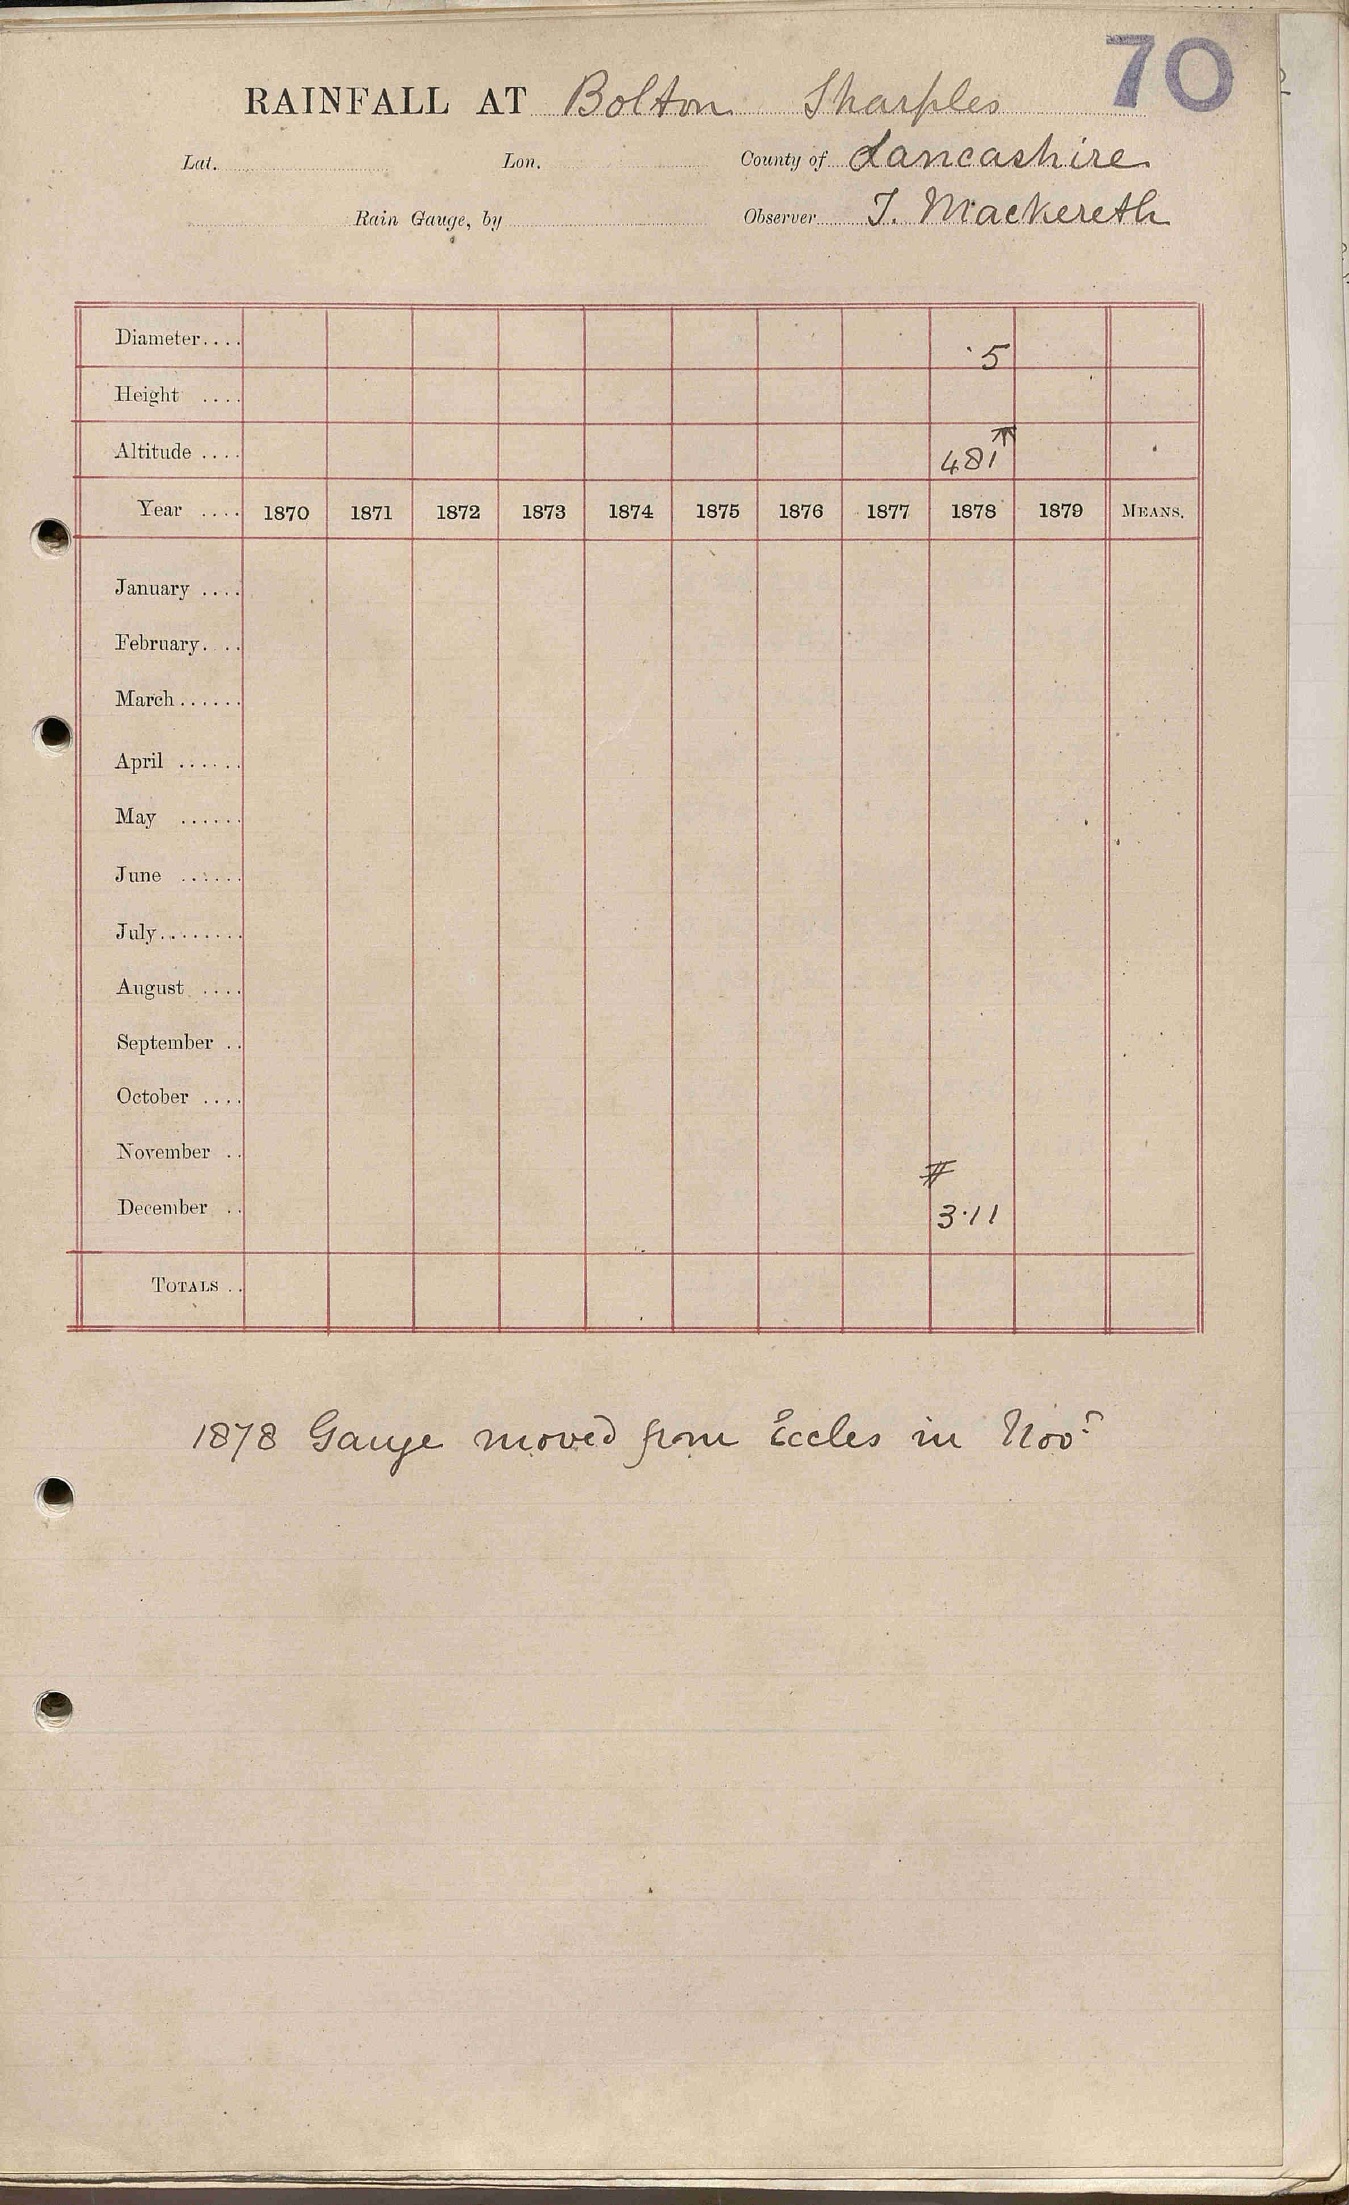 70
RAINFALL AT Bolton Sharples
Lat. Lon. County of Lancashire
Rain Gauge, by Observer T. Mackereth
Diameter.... 5
Height ....
Altitude .... 481 T
Year .... 1870 1871 1872 1873 1874 1875 1876 1877 1878 1879 MEANS.
January ....
February. ..
March......
April ......
May ......
June ......
July........
August ....
September ..
October ....
November ..
December .. 3.11
TOTALS ..
1878 Gauge moved from Eccles in Novr